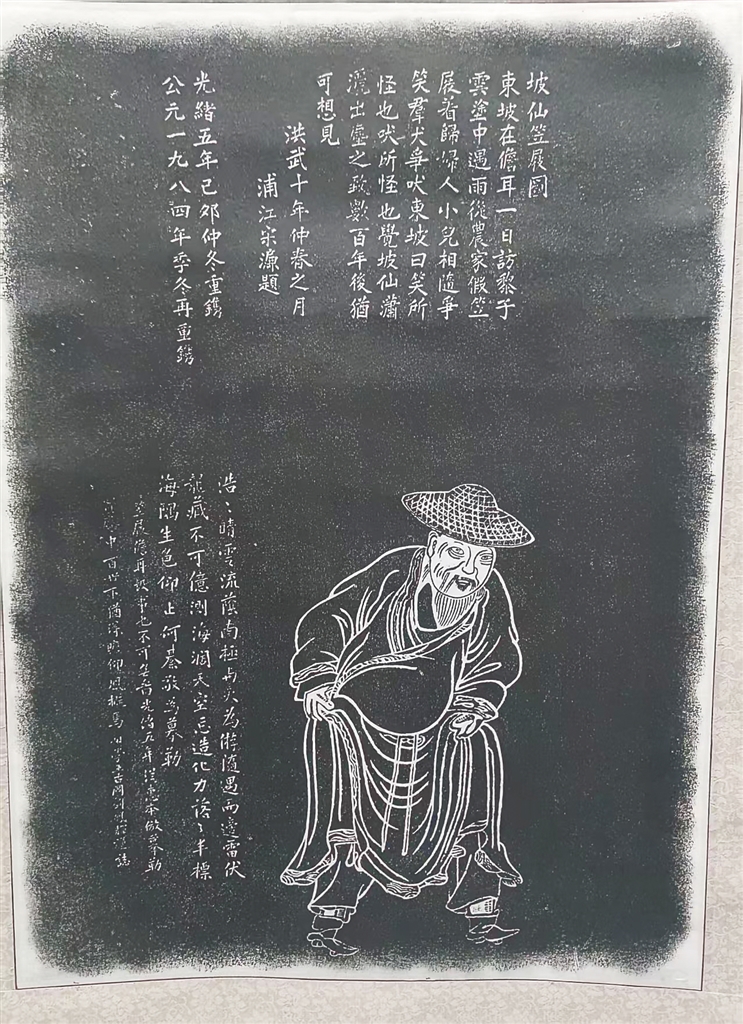 坡仙笠屐圖
東坡在儋耳一日訪黎子
雲塗中遇雨從農家假笠
屐着歸婦人小兒相隨爭
笑羣犬爭吠東坡曰笑所
怪也吠所怪也覺坡仙瀟
灑出塵之致數百年後猶
可想見
洪武十年仲春之月
浦江宋濂題
光緒五年己卯仲冬重鐫
公元一九八四年季冬再重鐫
浩〻晴雲流蔭南極與天為游隨遇而適雷伏
龍藏不可億測海濶天空忘造化力落〻半標
海隅生色仰止何基敬為摹勒
笠屐儋耳故事也不可無吾光緒五年從惠本倣摹勒
中百世下猶得瞻仰風誌